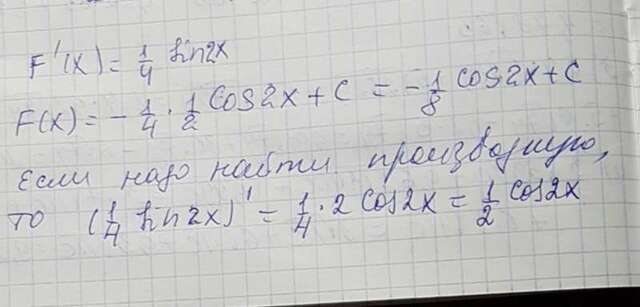 F'(x) = 1/4 sin2x
F(x) = - 1/4 · 1/2 cos2x + C = - 1/8 cos2x + C
Если надо найти производную,
то (1/4 sin2x)' = 1/4 · 2 cos2x = 1/2 cos2x